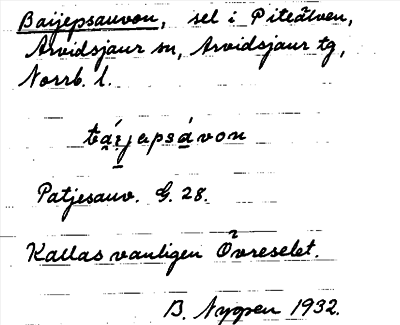 Baijepsauvon, sel i Piteälven,
Arvidsjaur sn, Arvidsjaur tg,
Norrb. l.
Patjesauv. G. 28.
Kallas vanligen Övreselet.
B. Nygren 1932.